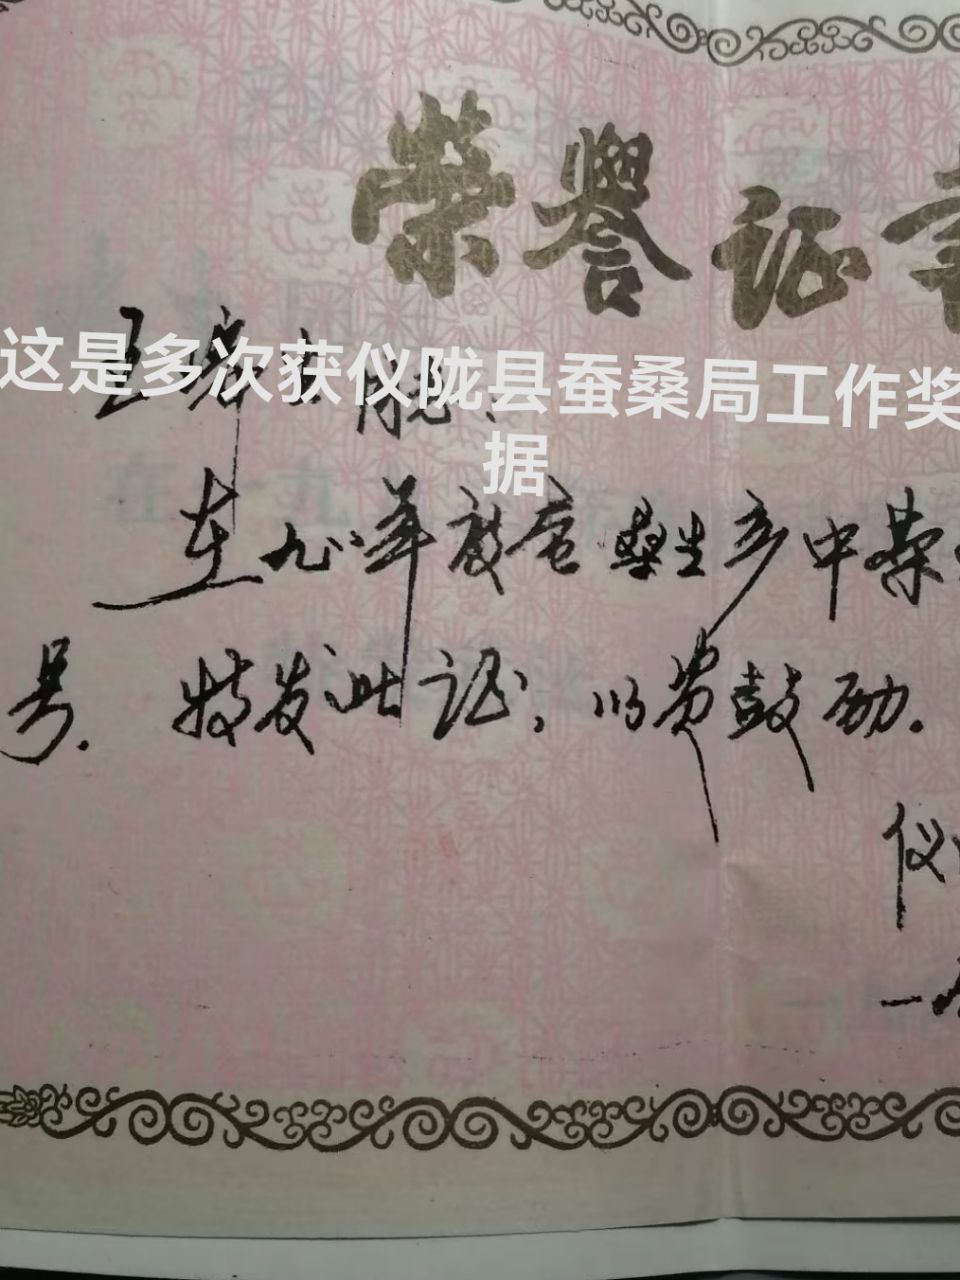 荣誉证
这是多次获仪陇县蚕桑局工作奖
据
王
在九〇年度蚕桑生产中荣
号。特发此证，以资鼓励。
仪
一九